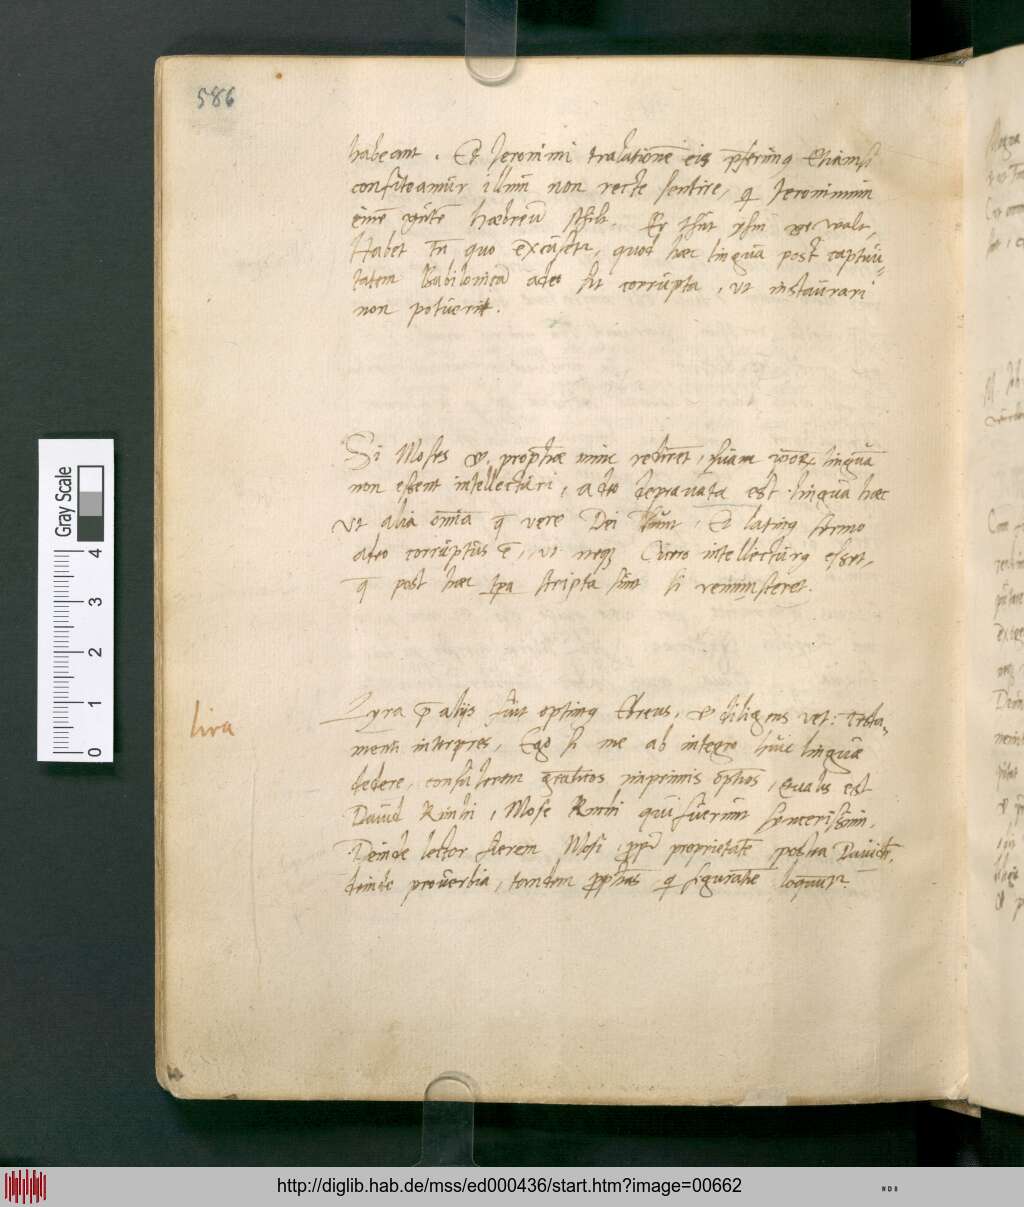 586
habeant. Et Jeronimi tralationē eis p̄ferimꝯ Etiamsi
confiteamur illum non recte sentire, qi Jeronimum
hæbreū
Habet tn̄ quo excuset̄, quod hæc lingua post captiui-
tatem Babilonicā adeo sit corrupta, ut instaurari
non potuerit.
Si Moses & prophæ nunc redirēt, suam linguā
non essent intellecturi, adeo deprauata est lingua hæc
Vt alia omnia q̄ vere Dei sunt, Et latinꝯ sermo
adeo corruptus ē, ut neqꝫ Cicero intellecturꝯ esset,
q̄ post hæc tp̄a scripta sunt si reuiuisceret.
lira
Lyra p̄ alijs fuit optimꝯ Ebreus, & diligens vet: Testa-
menti interpres, Ego si me ab integro huic linguæ
dedere, consulerem grāticos inprimis optīos, Qualis est
Dauid Kimhi, Mose Kimhi qui fuerunt syncerissimi.
Deinde lector fierem Mosi, propt̄ proprietatē postea Dauidi,
deinde prouerbia, tandem prophetas qi figuratiē loquunt̄.
Gray Scale
0 1 2 3 4
http://diglib.hab.de/mss/ed000436/start.htm?image=00662